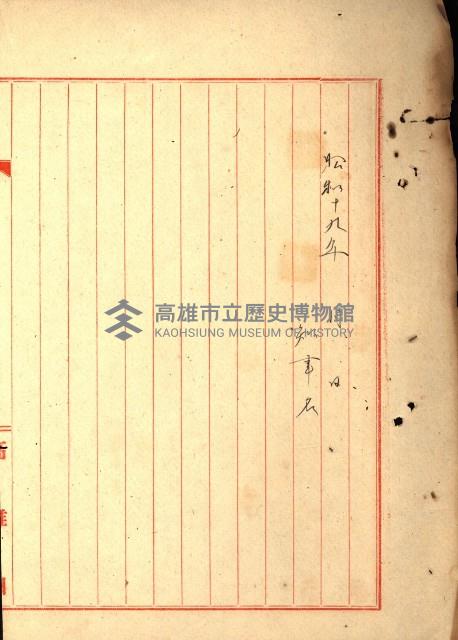 昭和十九年 月 日
知事名
高雄市立歷史博物館
KAOHSIUNG MUSEUM OF HISTORY
高雄州